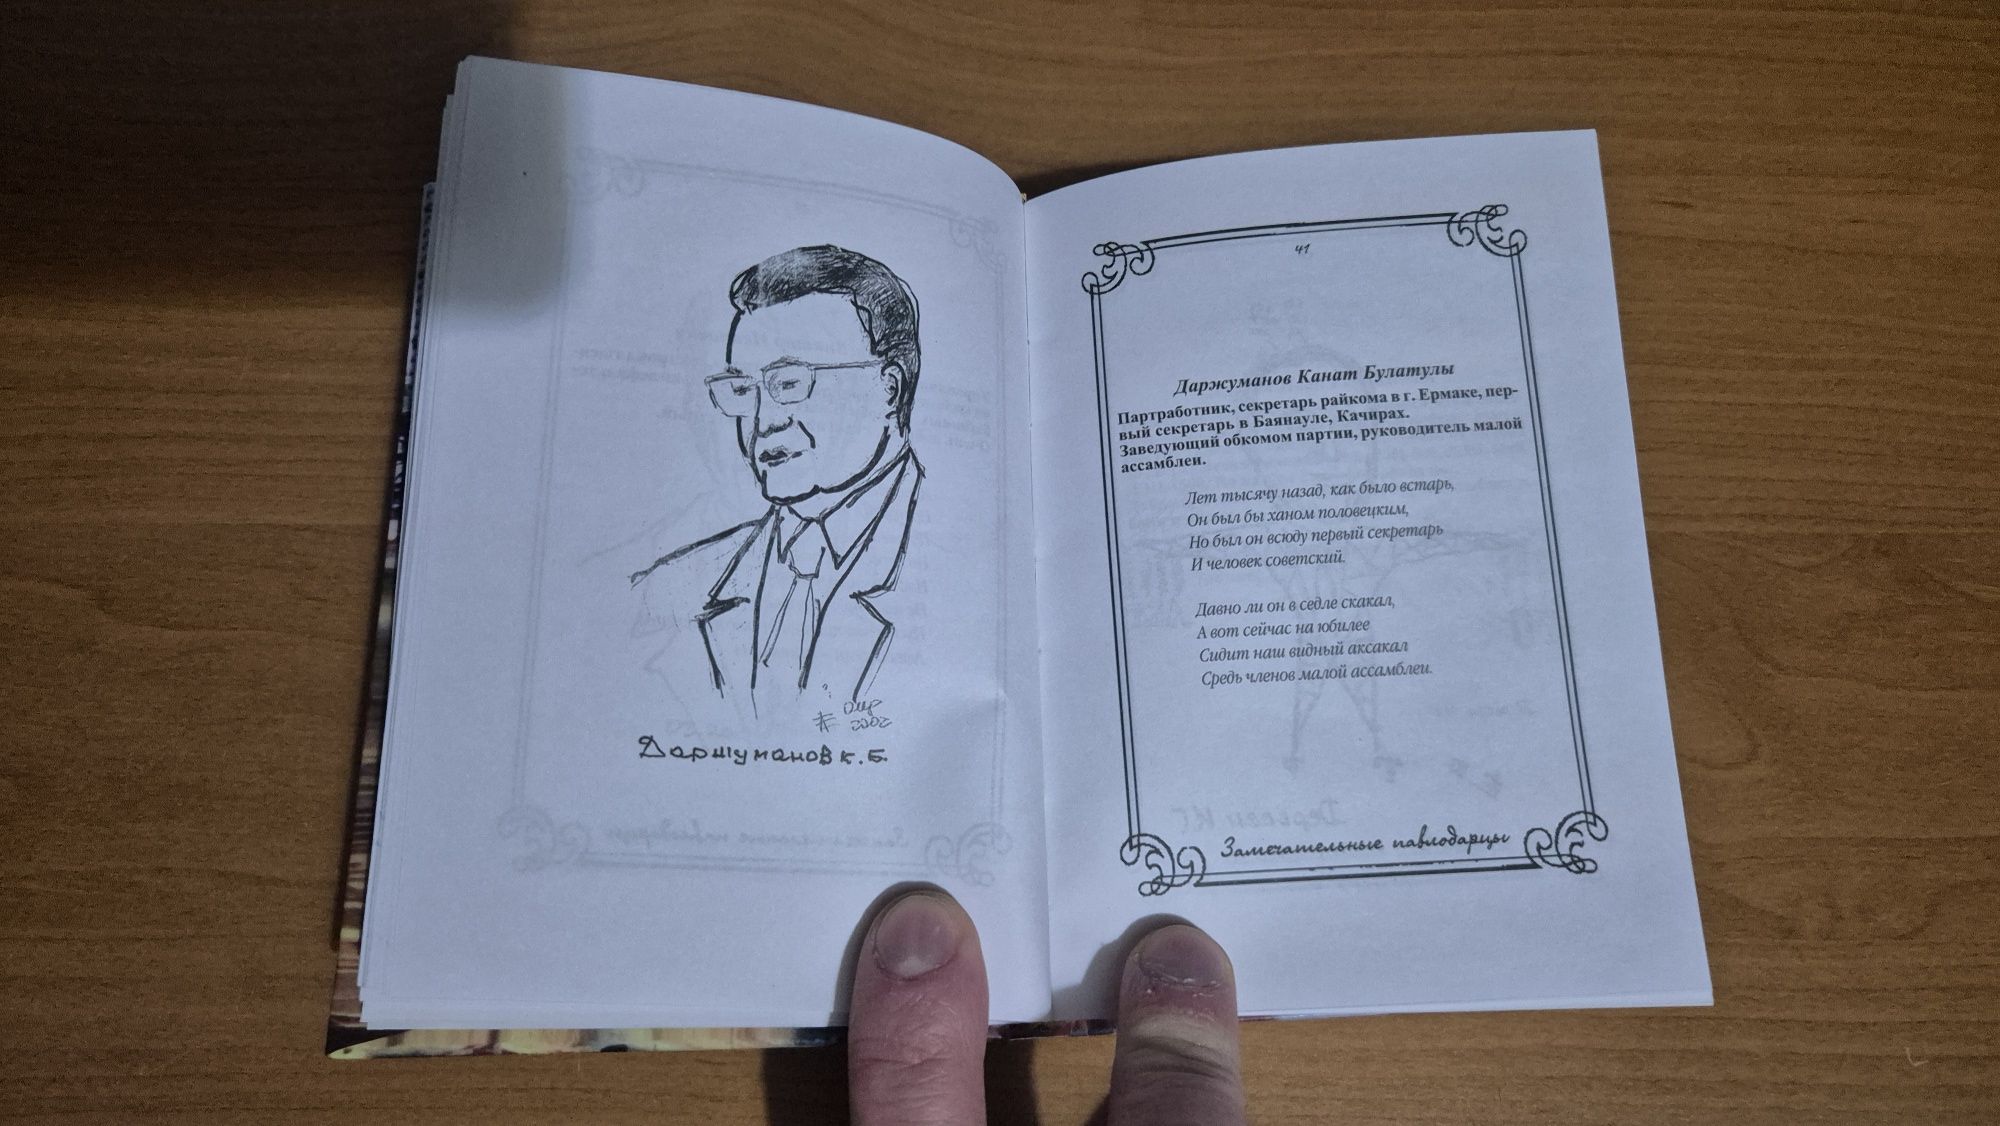 2002
Даржуманов К. Б.
41
Даржуманов Канат Булатулы
Партработник, секретарь райкома в г. Ермаке, пер-
вый секретарь в Баянауле, Качирах.
Заведующий обкомом партии, руководитель малой
ассамблеи.
Лет тысячу назад, как было встарь,
Он был бы ханом половецким,
Но был он всюду первый секретарь
И человек советский.
Давно ли он в седле скакал,
А вот сейчас на юбилее
Сидит наш видный аксакал
Средь членов малой ассамблеи.
Замечательные павлодарцы